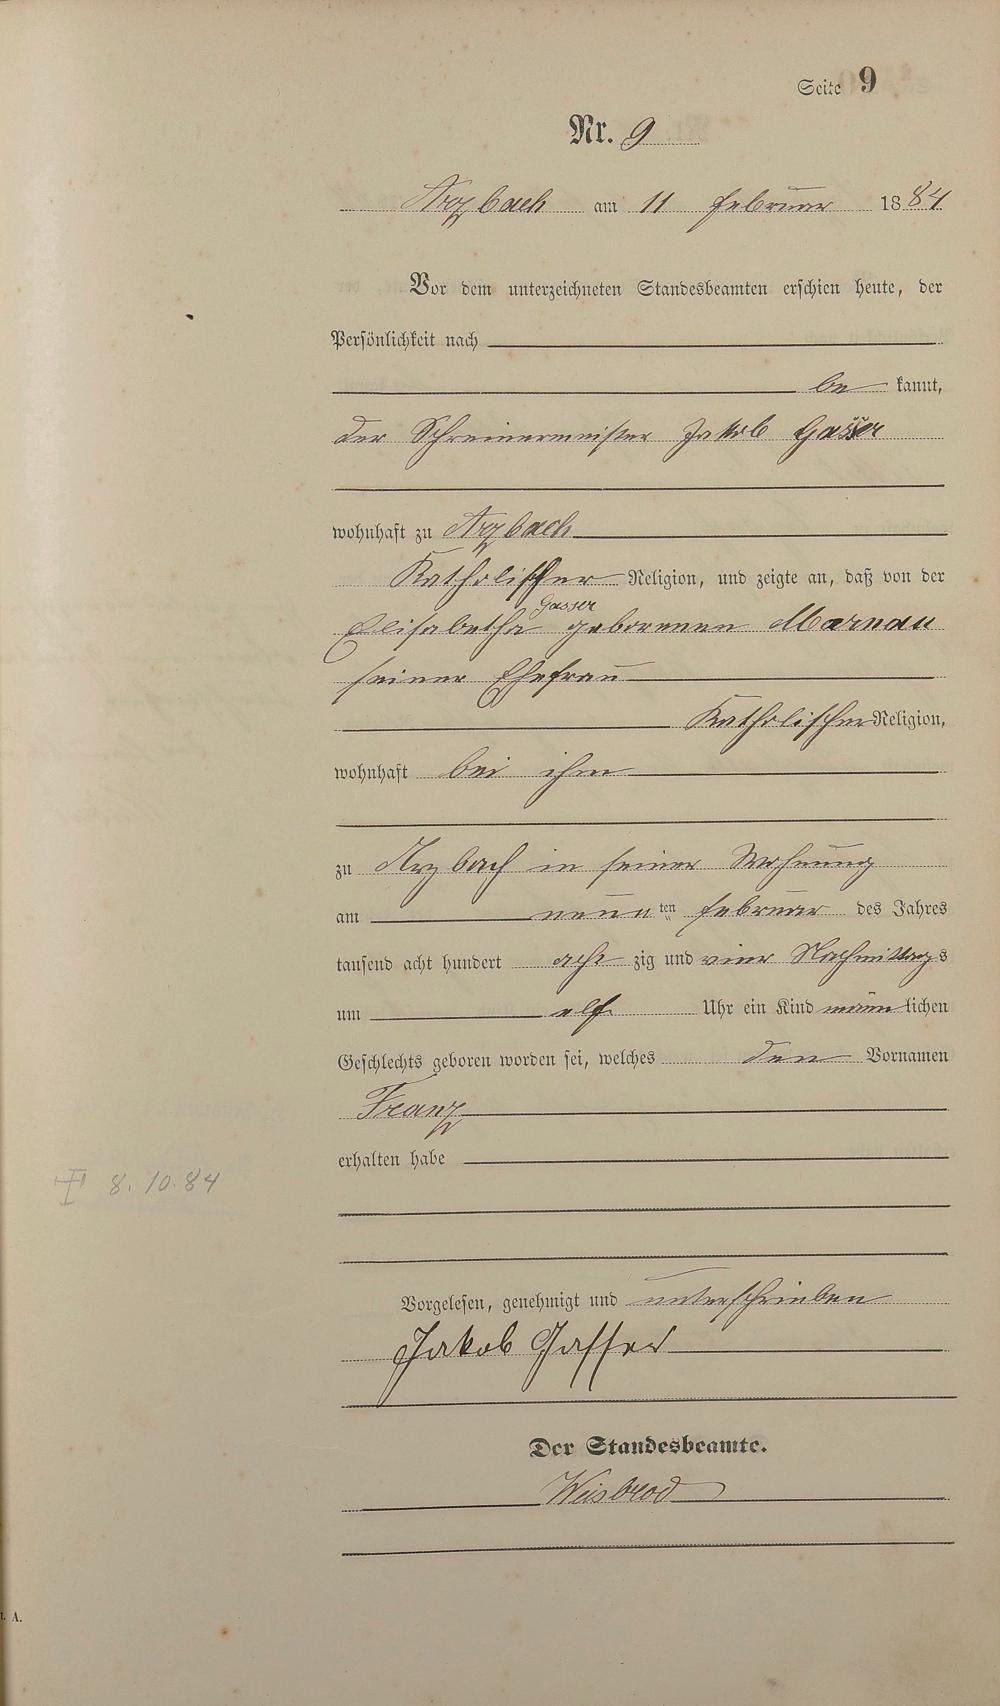 Seite 9
Nr. 9
Arzbach am 11 Februar 1884
Vor dem unterzeichneten Standesbeamten erschien heute, der
Persönlichkeit nach
be kannt,
der Schreinermeister Jakob Gasser
wohnhaft zu Arzbach
Katholischer Religion, und zeigte an, daß von der
Gasser
Elisabetha geborenen Marnau
seiner Ehefrau
Katholischer Religion,
wohnhaft bei ihm
zu Arzbach in seiner Wohnung
am neun ten Februar des Jahres
tausend acht hundert acht zig und vier Nachmittags
um elf Uhr ein Kind männlichen
Geschlechts geboren worden sei, welches den Vornamen
Franz
erhalten habe
8. 10. 84
Vorgelesen, genehmigt und unterschrieben
Jakob Gasser
Der Standesbeamte.
Weisbrod
A.